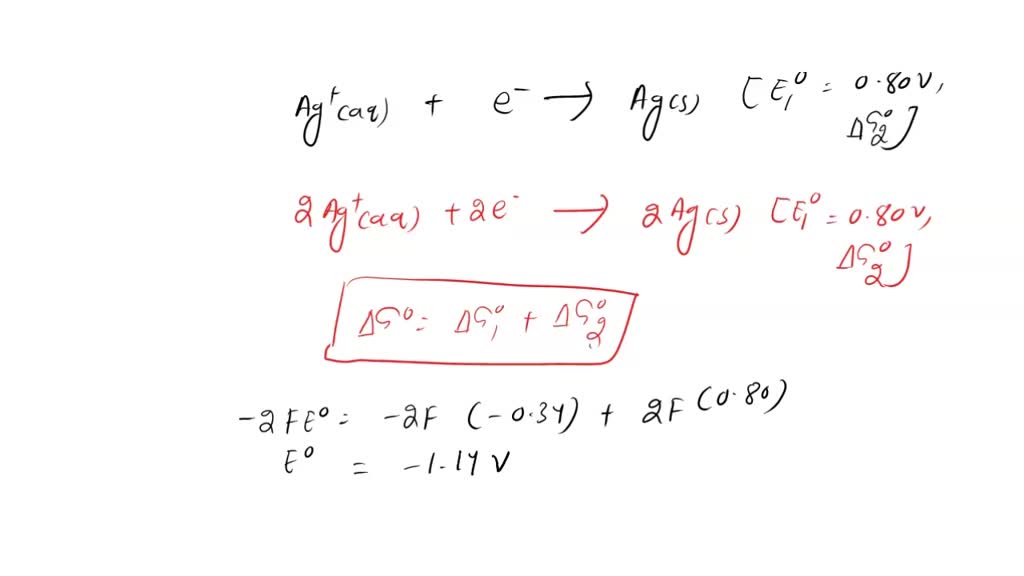 Ag⁺(aq) + e⁻ → Ag(s) [E₁⁰ = 0.80V,
ΔG₂⁰]
2Ag⁺(aq) + 2e⁻ → 2Ag(s) [E₁⁰ = 0.80V,
ΔG₂⁰]
ΔG⁰ = ΔG₁⁰ + ΔG₂⁰
-2FE⁰ = -2F (-0.34) + 2F (0.80)
E⁰ = -1.14 V